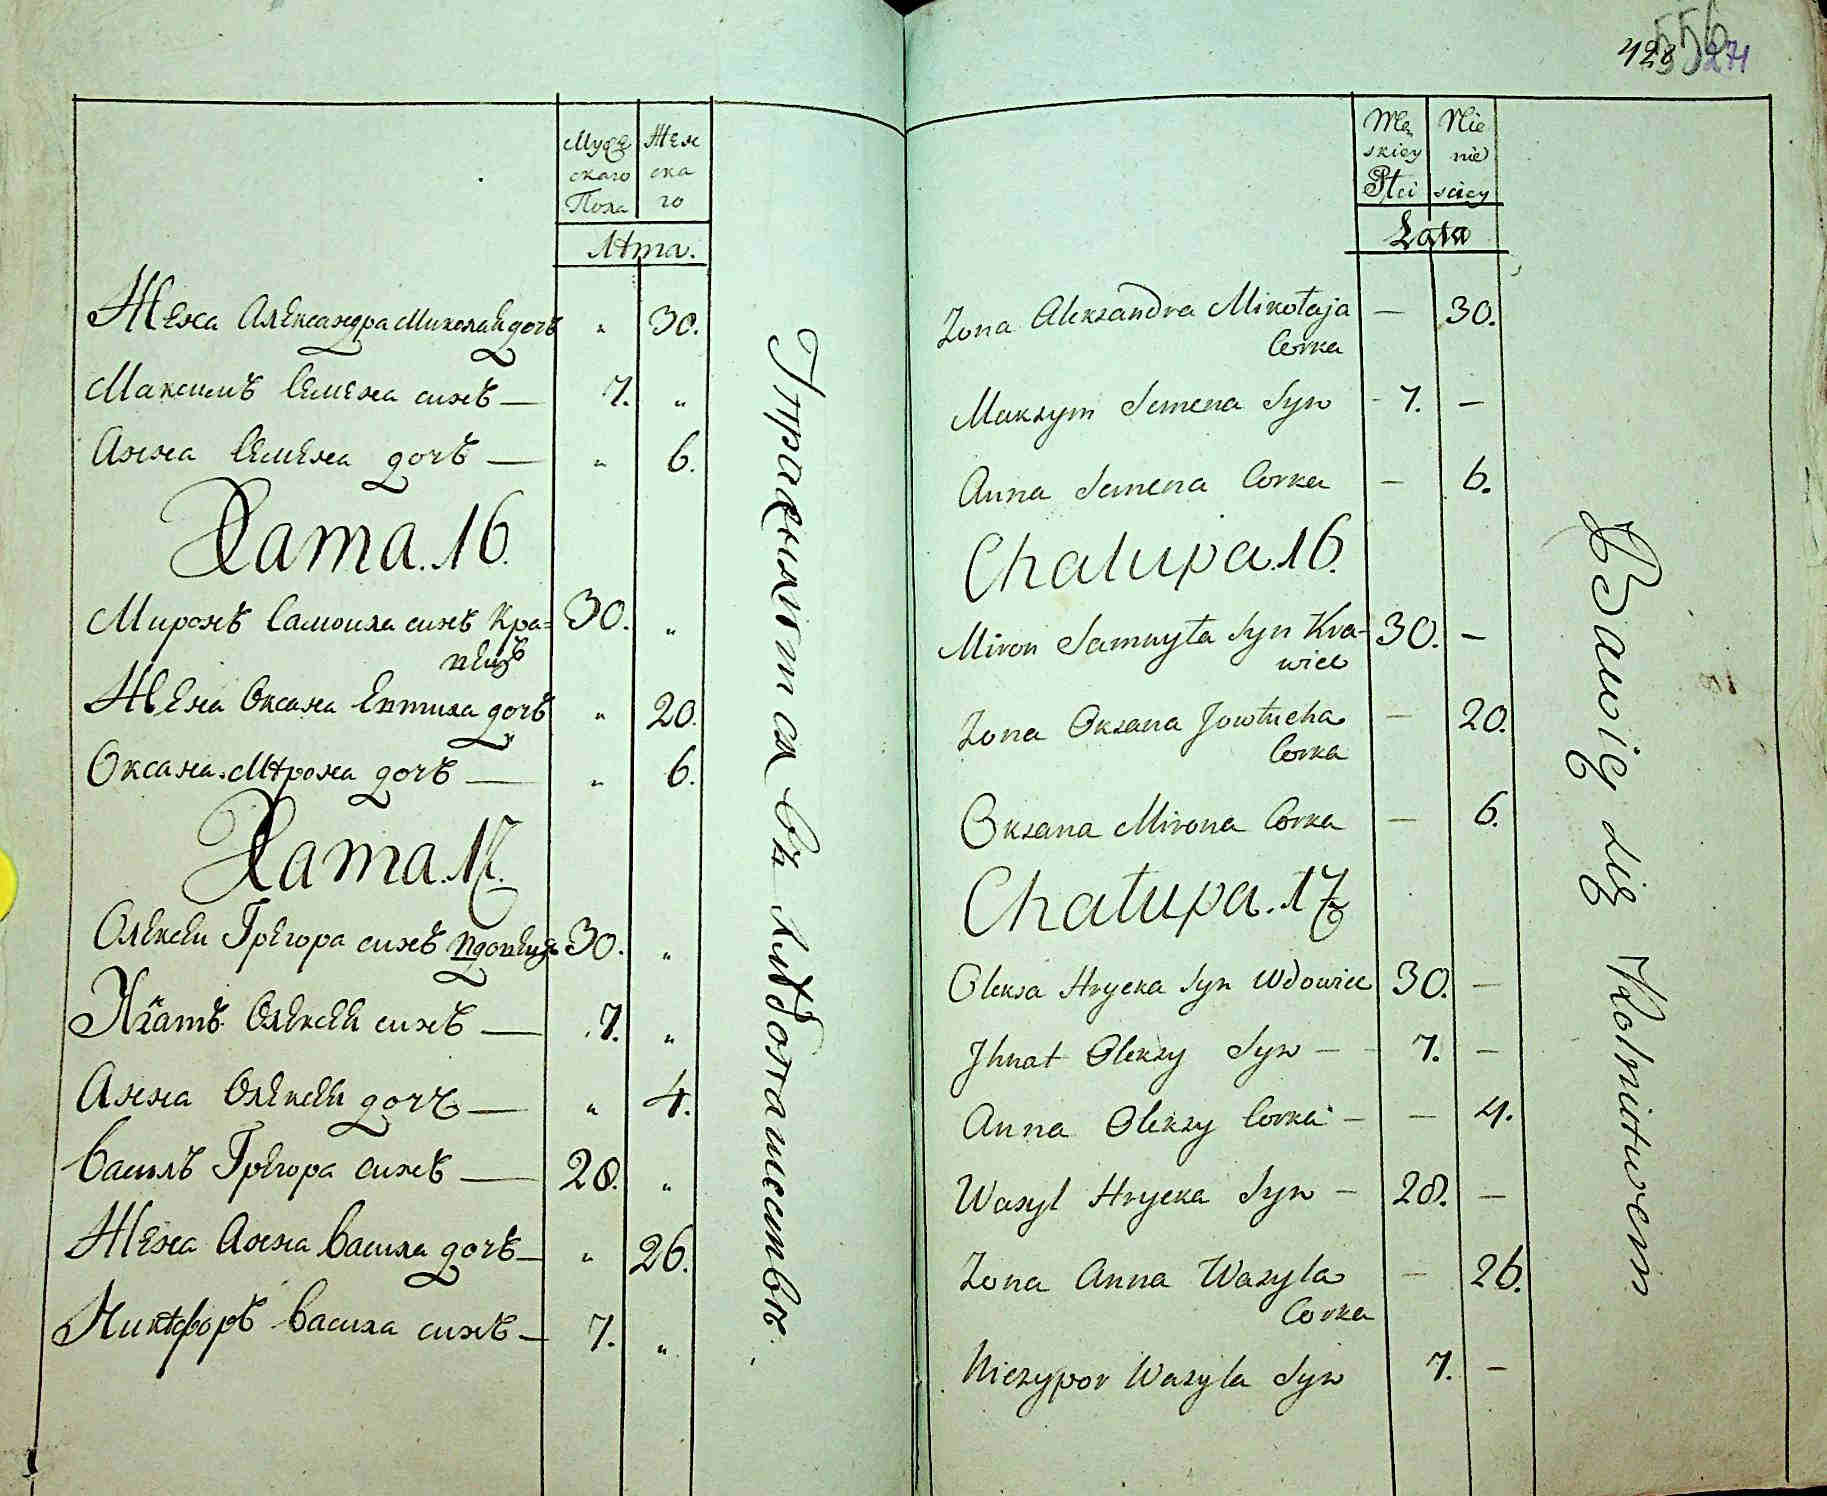 Мужескаго Пола
Женскаго
Лѣта.
Жена Александра Миколая дочъ " 30.
Максимъ Семена синъ — 7. "
Анна Семена дочъ — " 6.
Хата. 16.
Миронъ Самоила синъ Кра= 30. "
вецъ
Жена Оксана Евтиха дочъ " 20.
Оксана Мѣрона дочъ — " 6.
Хата. 17.
Олексѣи Грѣгора синъ вдовецъ 30. "
Игнатъ Олексѣи синъ — 7. "
Анна Олексѣи дочъ — " 4.
Василъ Грѣгора синъ — 28. "
Жена Анна Василя дочъ — " 26.
Никѣфоръ Василя синъ — 7. "
въ хлѣбопашествѣ.
428 556 271
Męskiey Płci
Nieścey
Lata
Zona Alexandra Mikołaja — 30.
Corka
Maksym Semena Syn - 7. —
Anna Semena Corka — 6.
Chałupa. 16.
Miron Samuyła Syn Kra- 30. —
wiec
Zona Oksana Jowtucha — 20.
Corka
Oksana Mirona Corka — 6.
Chałupa. 17.
Oleksa Hryćka Syn Wdowiec 30. —
Jhnat Oleksy Syn — 7. —
Anna Oleksy Corka — — 4.
Wasyl Hryćka Syn — 28. —
Zona Anna Wasyla — 26.
Corka
Niczypor Wasyla Syn 7. —
Bawią się Rolnictwem